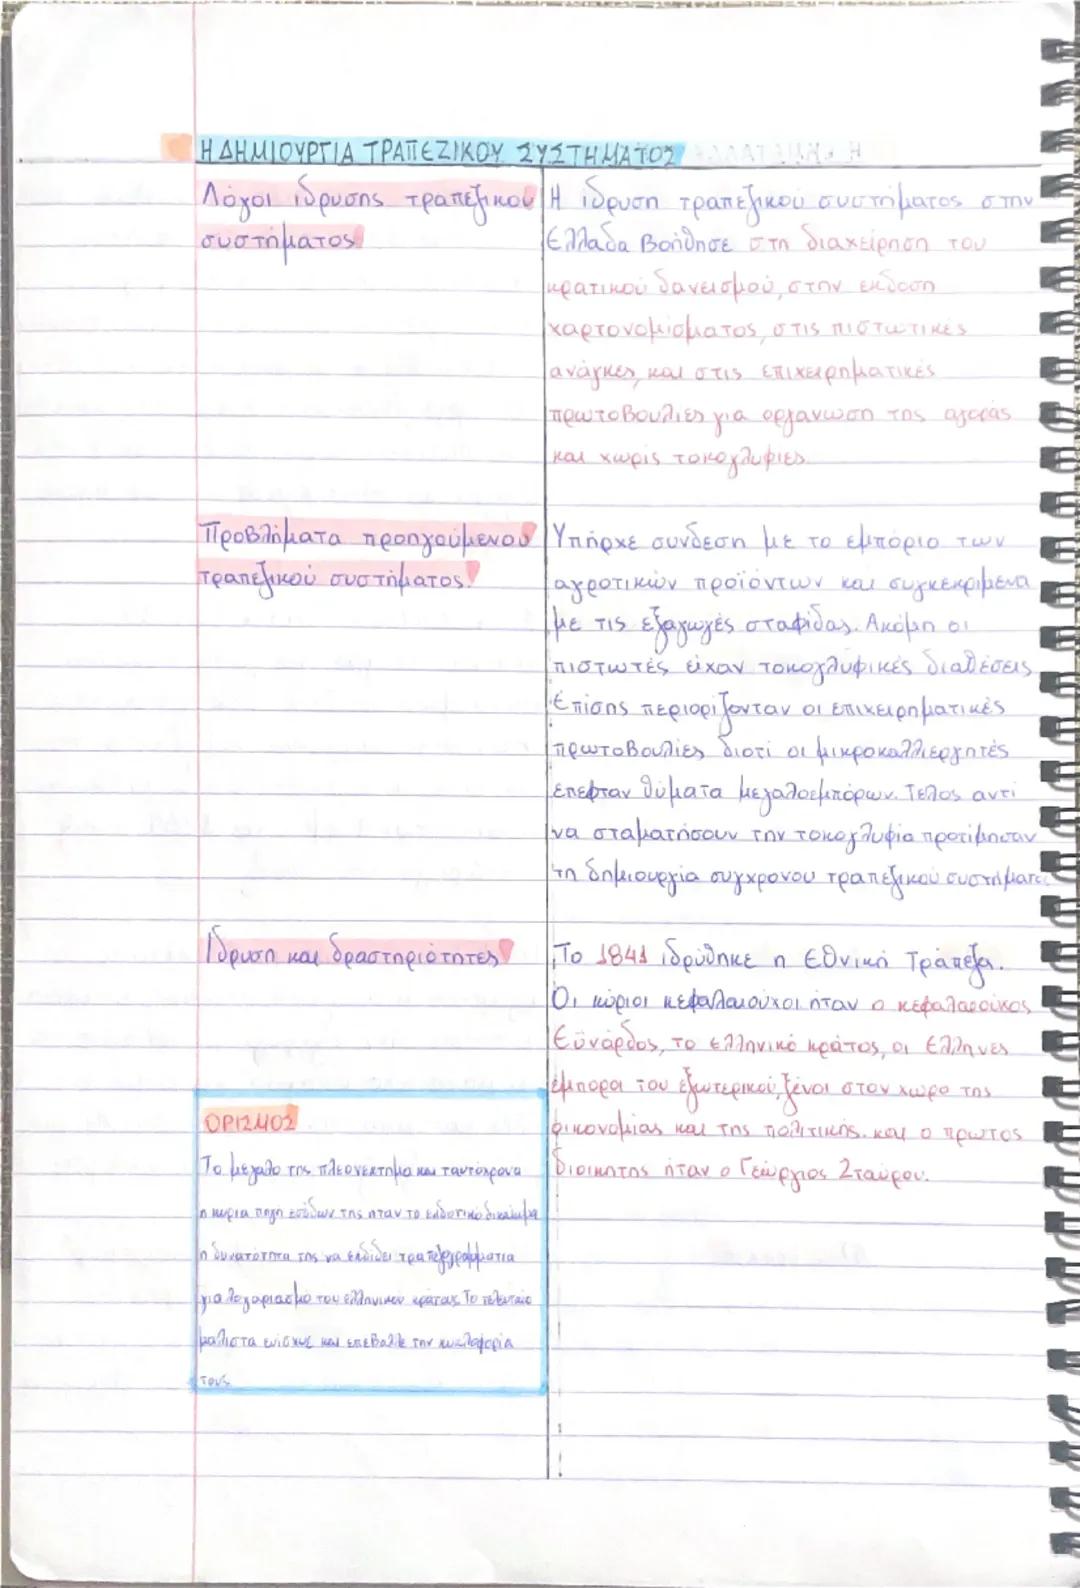 Η ΔΗΜΙΟΥΡΓΙΑ ΤΡΑΠΕΖΙΚΟΥ ΣΥΣΤΗΜΑΤΟΣ
Λόγοι ίδρυσης τραπεζικού
συστήματος
Η ίδρυση τραπεζικού συστήματος στην
Ελλάδα βοήθησε στη διαχείρηση του
κρατικού δανεισμού, στην έκδοση
χαρτονομίσματος, στις πιστωτικές
ανάγκες, και στις επιχειρηματικές
πρωτοβουλίες για οργάνωση της αγοράς
και χωρίς τοκογλυφίες.
Προβλήματα προηγούμενου
τραπεζικού συστήματος.
Υπήρχε σύνδεση με το εμπόριο των
αγροτικών προϊόντων και συγκεκριμένα
με τις εξαγωγές σταφίδας. Ακόμη οι
πιστωτές είχαν τοκογλυφικές διαθέσεις
Επίσης περιορίζονταν οι επιχειρηματικές
πρωτοβουλίες διότι οι μικροκαλλιεργητές
έπεφταν θύματα μεγαλοεμπόρων. Τέλος αντί
να σταματήσουν την τοκογλυφία προτίμησαν
τη δημιουργία συγχρονου τραπεζικού συστήματος
Ίδρυση και δραστηριότητες
Το 1841 ιδρύθηκε η Εθνική Τράπεζα.
Οι κύριοι κεφαλαιούχοι ήταν ο κεφαλαιούχος
Εϋνάρδος, το ελληνικό κράτος, οι Έλληνες
έμποροι του εξωτερικού, ξένοι στον χώρο της
οικονομίας και της πολιτικής. και ο πρώτος
διοικητης ήταν ο Γεώργιος Σταύρου.
ΟΡΙΣΜΟΣ
Το μεγάλο της πλεονέκτημα και ταυτόχρονα
η κύρια πηγή εσόδων της ήταν το εκδοτικό δικαίωμα
η δυνατότητα της να εκδίδει τραπεζογραμμάτια
για λογαριασμό του ελληνικού κράτους. Το τελευταίο
μάλιστα ενίσχυε και επέβαλλε την κυκλοφορία
τους